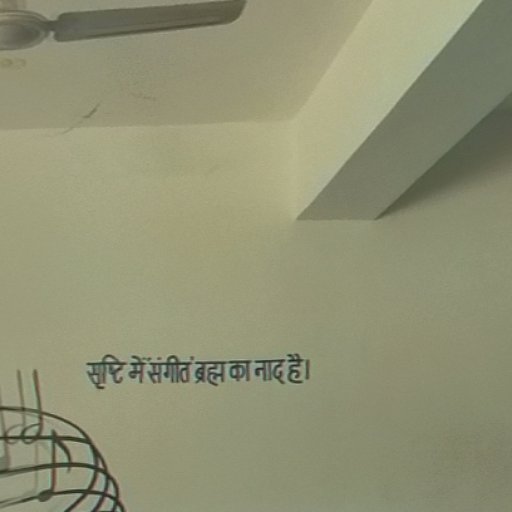 सृष्टि में संगीत ब्रह्म का नाद है।